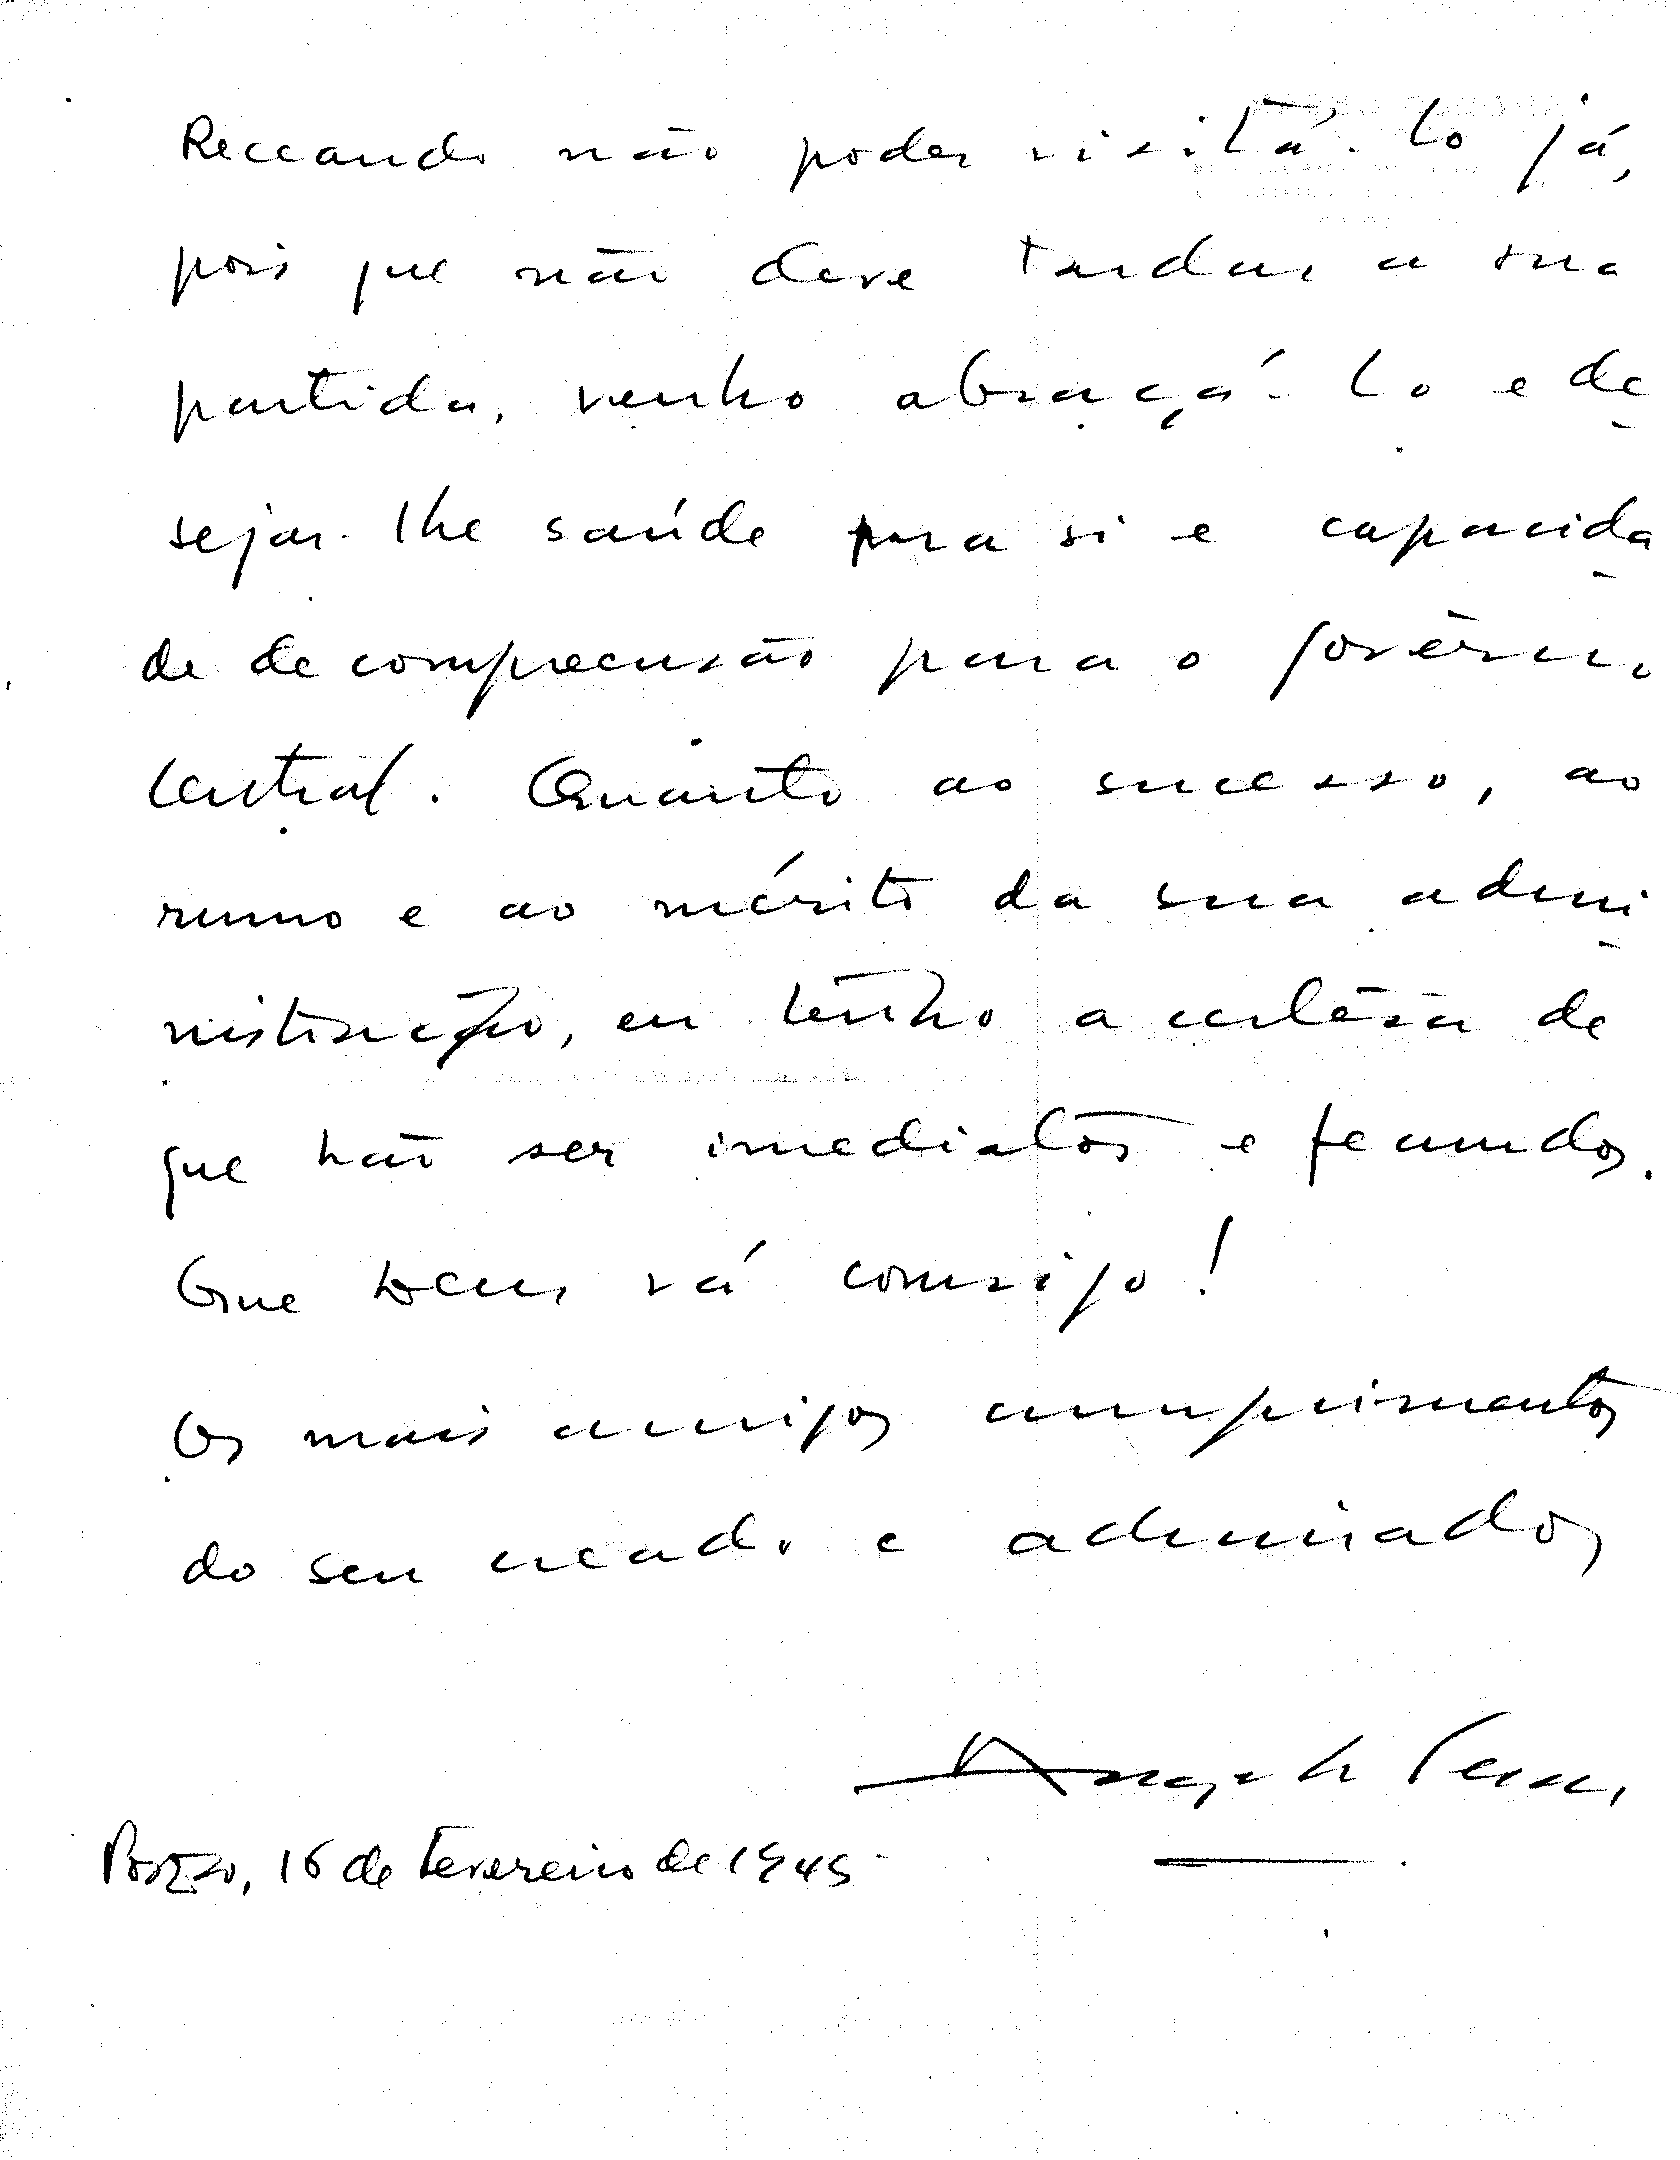 Receando não poder visitá-lo já,
pois que não deve tardar a sua
partida, venho abraçá-lo e de
sejar-lhe saúde para si e capacida
de de compreensão para o govêrno
Central. Quanto ao sucesso, ao
rumo e ao mérito da sua admi
nistração, eu tenho a certêsa de
que hão ser imediatos e fecundos.
Que Deus vá comsigo!
Os mais amigos cumprimentos
do seu criado e admirador
16 de Fevereiro de 1945